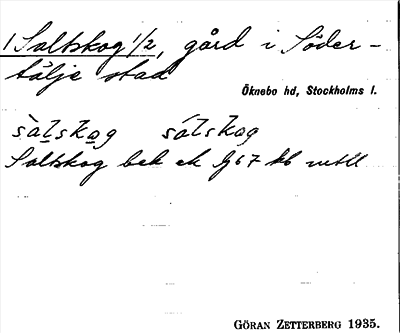 1 Saltskog 1/2, gård i Söder-
tälje stad
Öknebo hd, Stockholms l.
sàlskog sálskog
Saltskog bek ek
GÖRAN ZETTERBERG 1935.